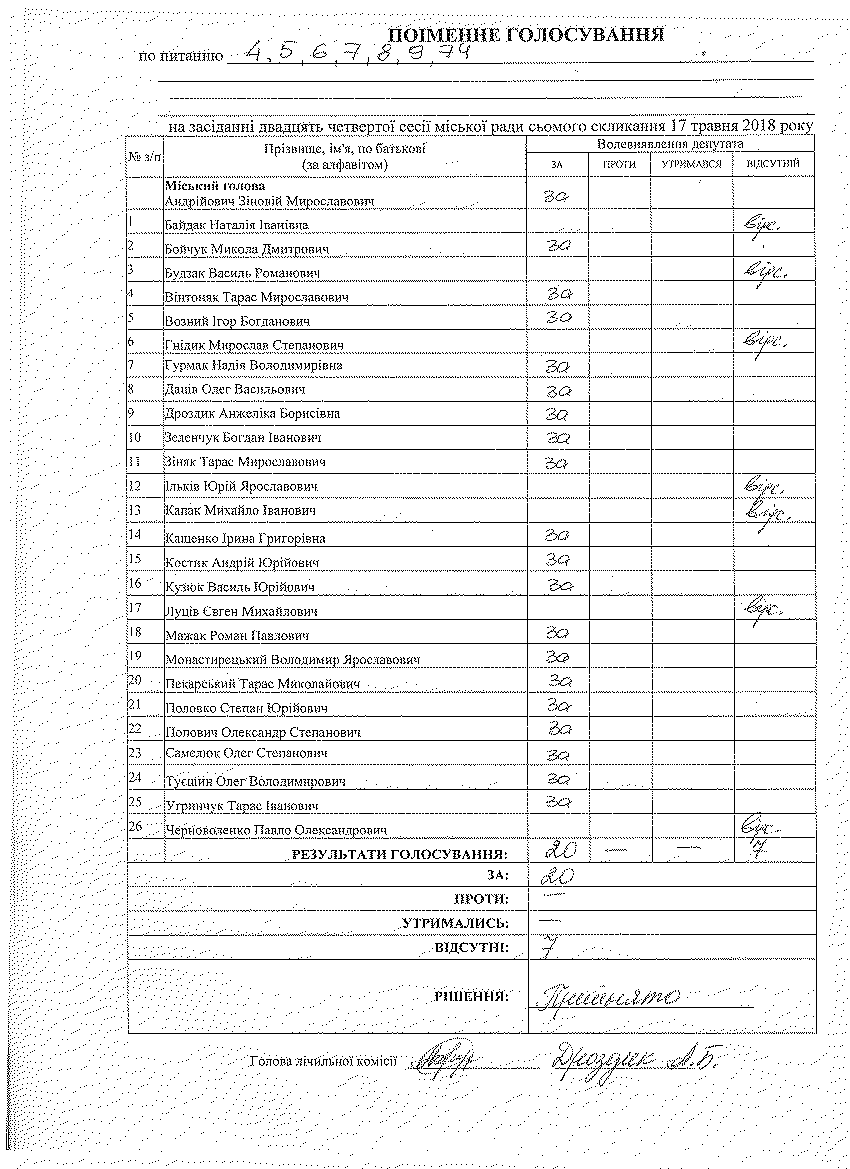 ПОІМЕННЕ ГОЛОСУВАННЯ
по питанню 4, 5, 6, 7, 8, 9, 74
на засіданні двадцять четвертої сесії міської ради сьомого скликання 17 травня 2018 року
№ з/п Прізвище, ім'я, по батькові (за алфавітом) Волевиявлення депутата
ЗА ПРОТИ УТРИМАВСЯ ВІДСУТНІЙ
Міський голова
Андрійович Зіновій Мирославович за
1 Байдак Наталія Іванівна відс.
2 Бойчук Микола Дмитрович за
3 Будзак Василь Романович відс.
4 Вінтоняк Тарас Мирославович за
5 Возний Ігор Богданович за
6 Гнідик Мирослав Степанович відс.
7 Гурмак Надія Володимирівна за
8 Даців Олег Васильович за
9 Дроздик Анжеліка Борисівна за
10 Зеленчук Богдан Іванович за
11 Зіняк Тарас Мирославович за
12 Ільків Юрій Ярославович відс.
13 Капак Михайло Іванович відс.
14 Кащенко Ірина Григорівна за
15 Костик Андрій Юрійович за
16 Кузюк Василь Юрійович за
17 Луців Євген Михайлович відс.
18 Мажак Роман Павлович за
19 Монастирецький Володимир Ярославович за
20 Пекарський Тарас Миколайович за
21 Половко Степан Юрійович за
22 Попович Олександр Степанович за
23 Самелюк Олег Степанович за
24 Туєшин Олег Володимирович за
25 Угринчук Тарас Іванович за
26 Черноволенко Павло Олександрович відс.
РЕЗУЛЬТАТИ ГОЛОСУВАННЯ: 20 — — 7
ЗА: 20
ПРОТИ: —
УТРИМАЛИСЬ: —
ВІДСУТНІ: 7
РІШЕННЯ: Прийнято
Голова лічильної комісії Дроздик А.Б.